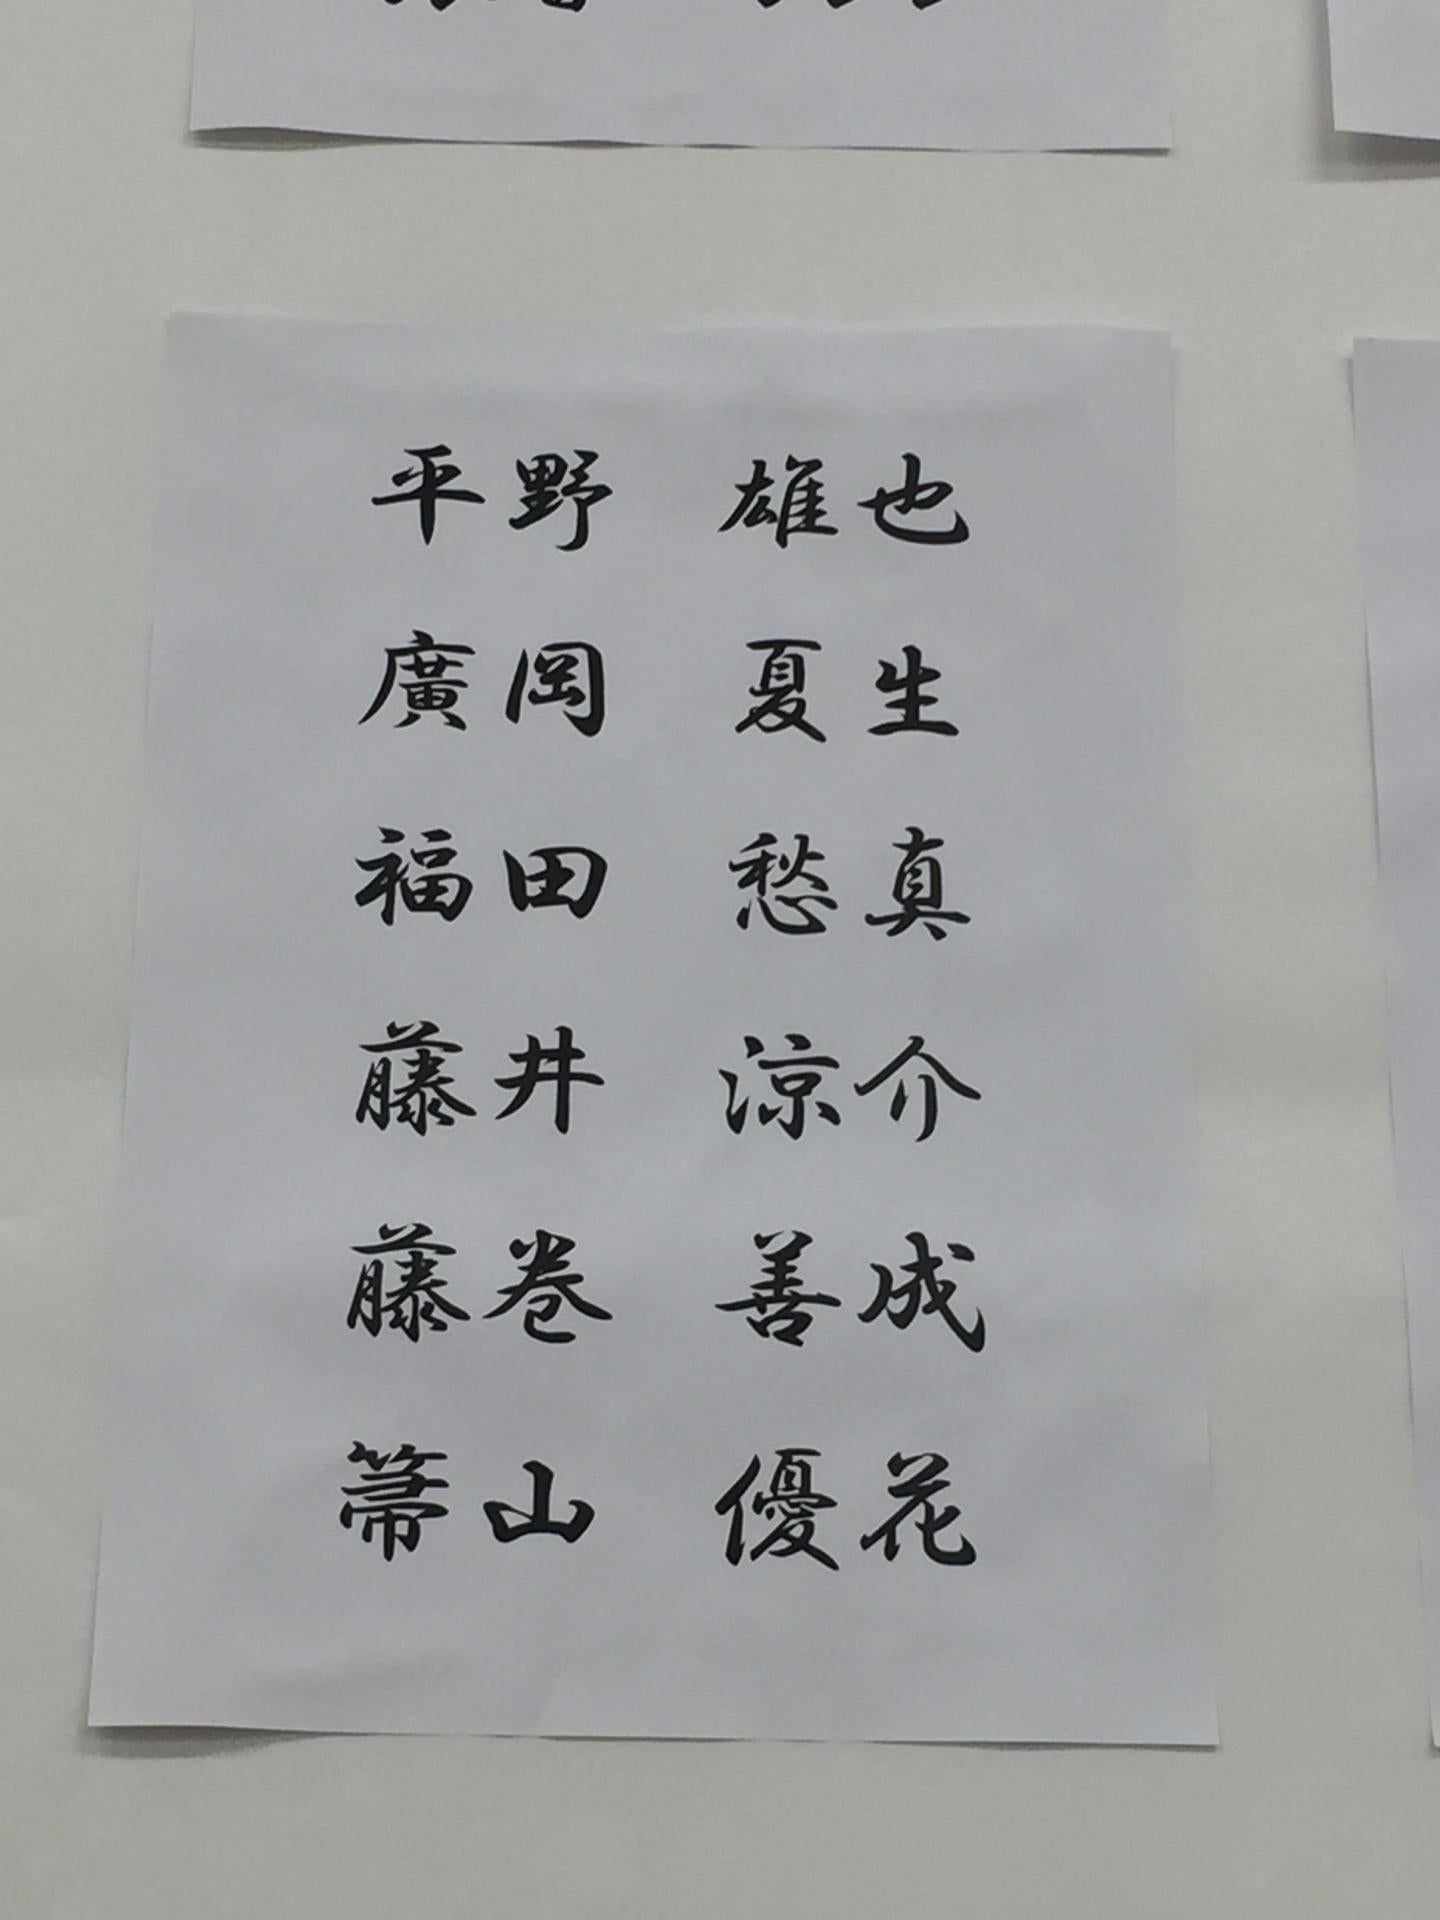 平野 雄也
廣岡 夏生
福田 愁真
藤井 涼介
藤巻 善成
箒山 優花